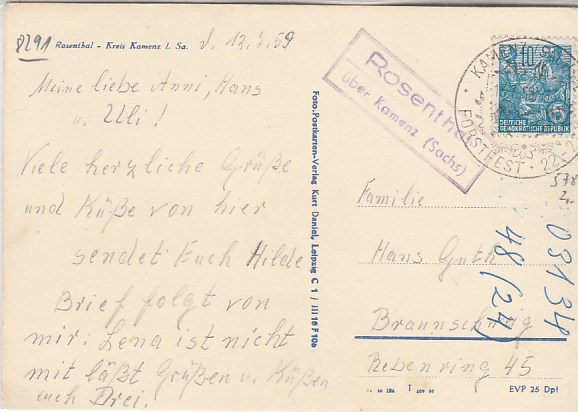 8291
Rosenthal - Kreis Kamenz i. Sa.
d. 12.7.59
Meine liebe Anni, Hans
u. Uli!
Viele herzliche Grüße
und Küße von hier
sendet Euch Hilde
Brief folgt von
mir. Lena ist nicht
mit läßt Grüßen u. Küßen
euch Drei.
Foto-Postkarten-Verlag Kurt Daniel, Leipzig C 1 / III 18 F 10a
Rosenthal
über Kamenz (Sachs)
KAMENZ
FORSTFEST
10
DEUTSCHE
DEMOKRATISCHE REPUBLIK
578
2,-
Familie
Hans Guth
Braunschweig
Rebenring 45
03134
48 (24)
EVP 25 Dpf